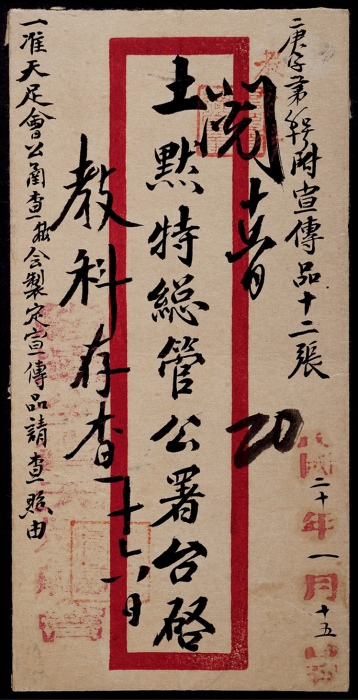 庚字第 号附宣傳品十二張
民國二十年一月十五
閲 十五日
20
土默特総管公署台啓
教科存查 一十六日
一准天足會公函查敝会製定宣傳品請查照由